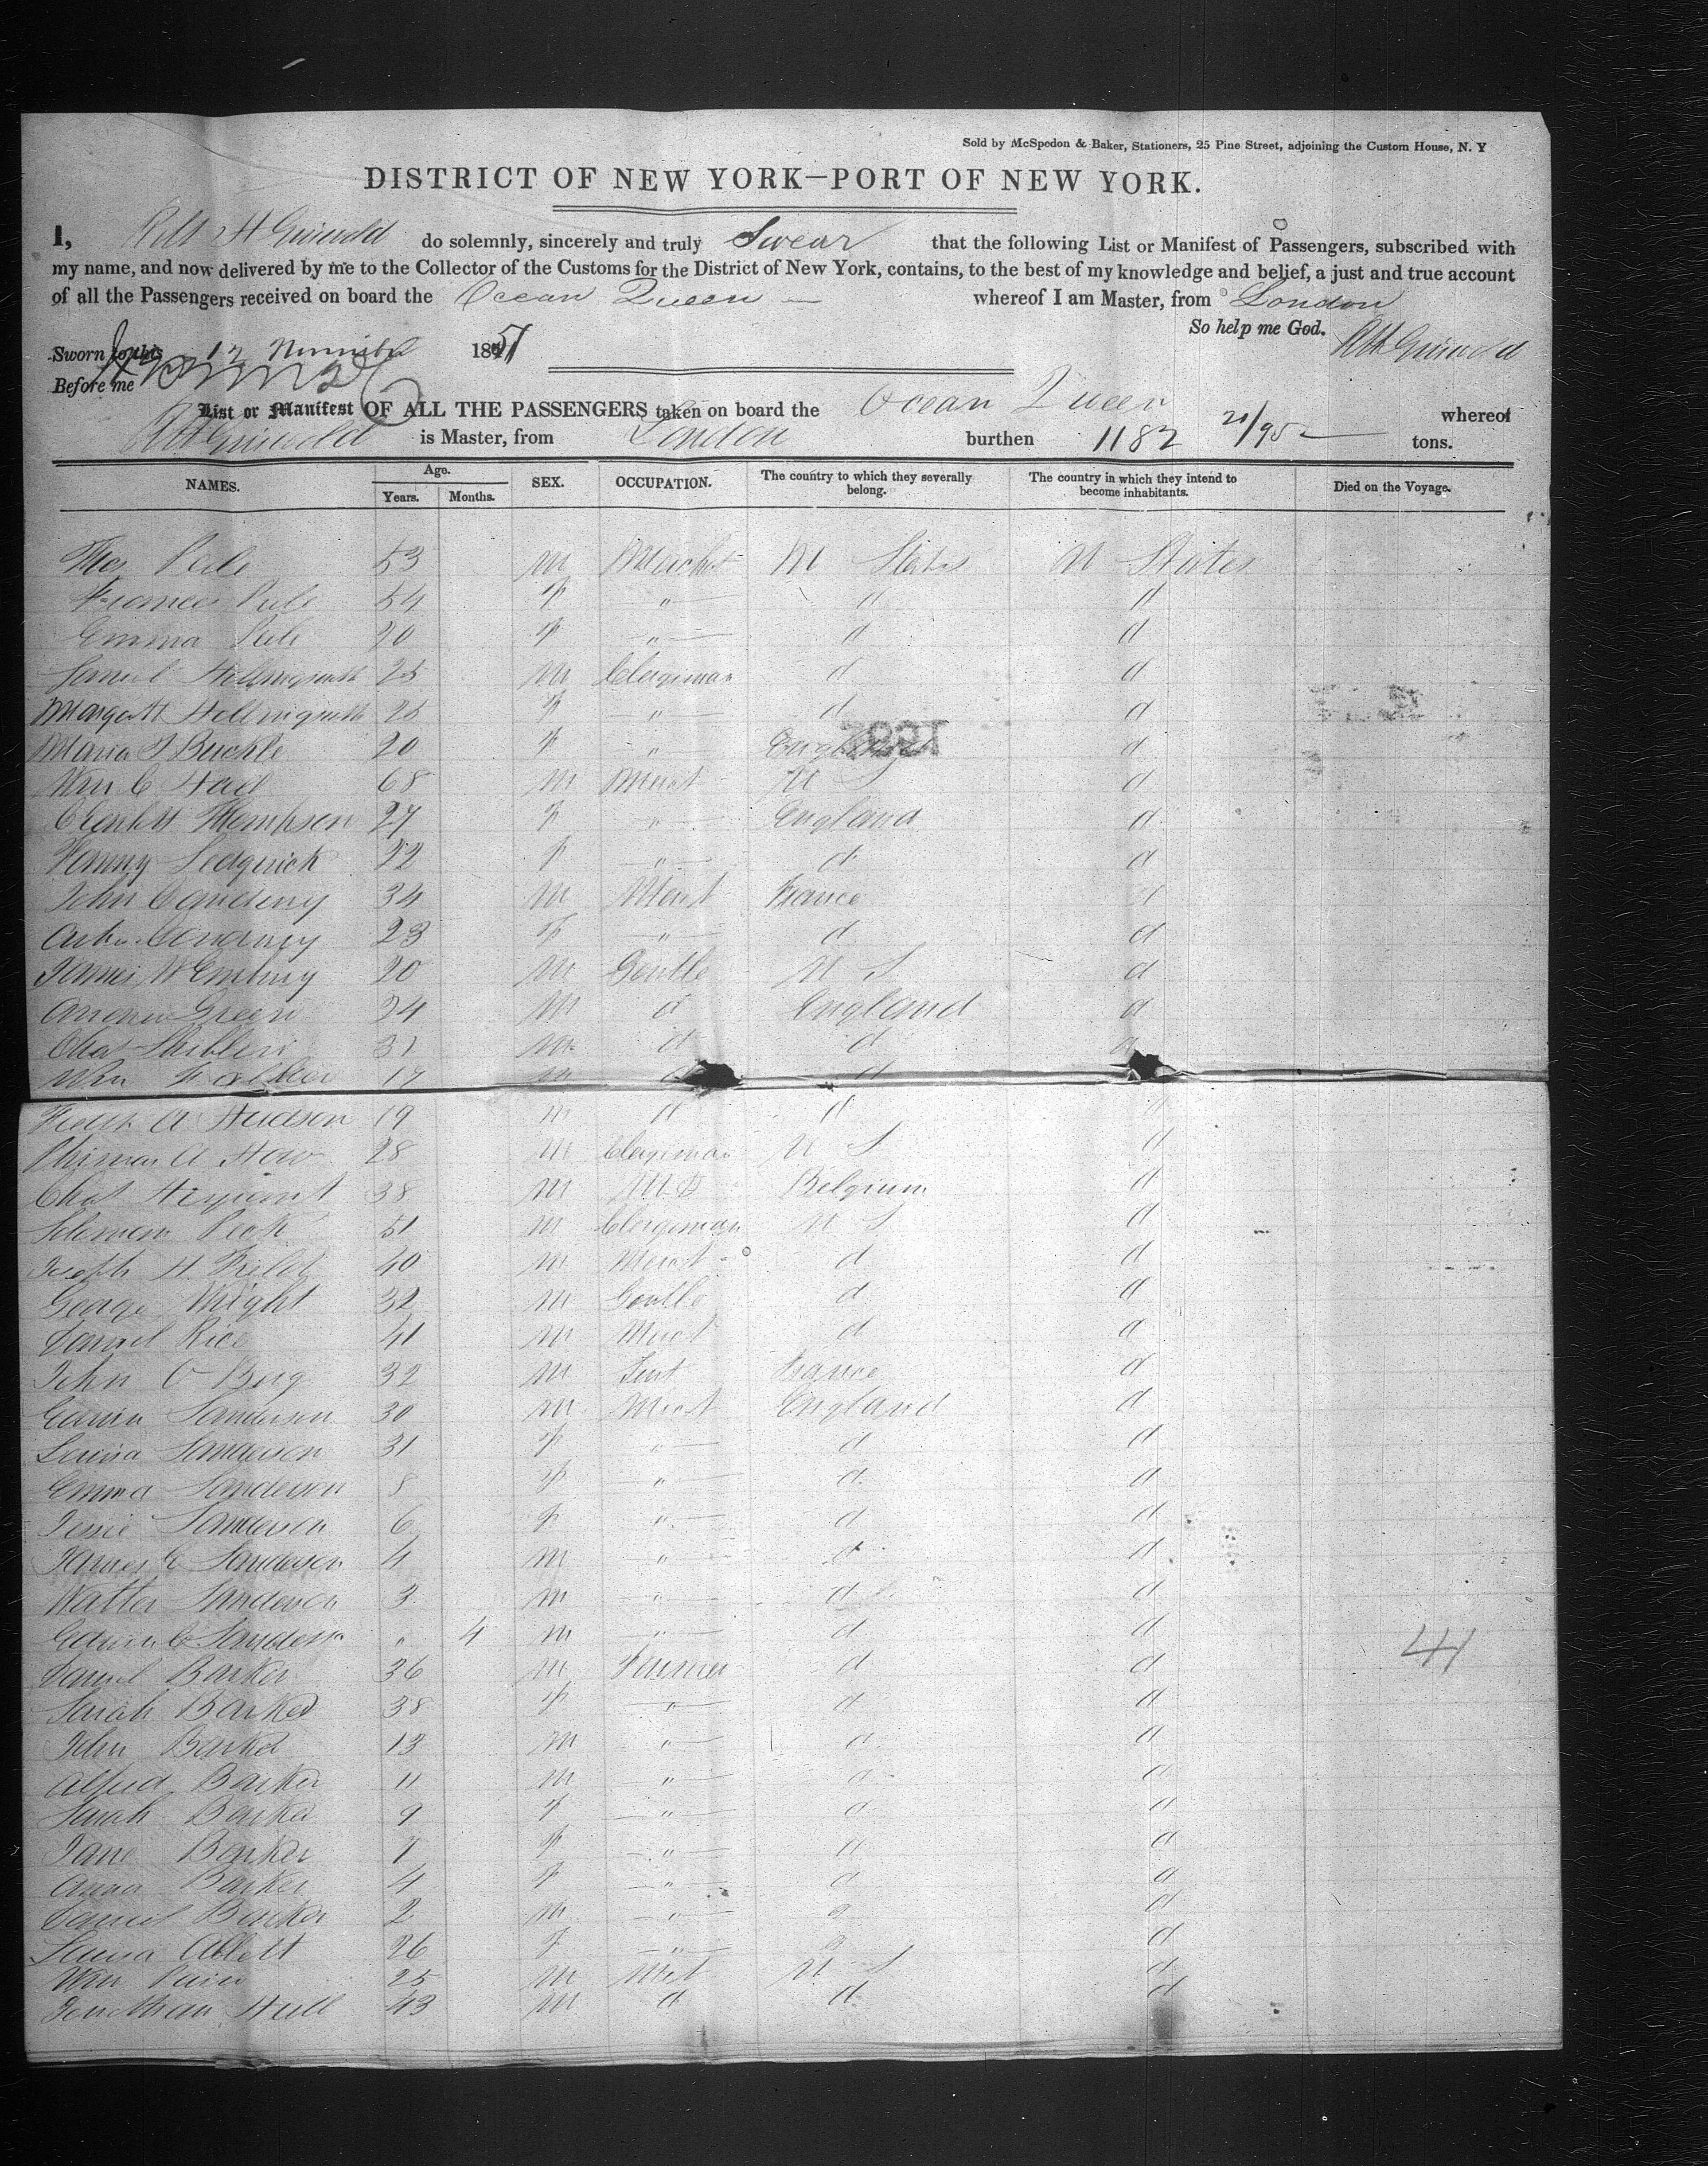 Sold by McSpedon & Baker, Stationers, 25 Pine Street, adjoining the Custom House, N. Y
DISTRICT OF NEW YORK—PORT OF NEW YORK.
I, Robt H Griswold do solemnly, sincerely and truly Swear that the following List or Manifest of Passengers, subscribed with
my name, and now delivered by me to the Collector of the Customs for the District of New York, contains, to the best of my knowledge and belief, a just and true account
of all the Passengers received on board the Ocean Queen whereof I am Master, from London
So help me God. RH Griswold
Sworn to this 12 November 1851
Before me
List or Manifest OF ALL THE PASSENGERS taken on board the Ocean Queen whereof
RH Griswold is Master, from London burthen 1182 21/95 tons.
NAMES. Age. Years. Months. SEX. OCCUPATION. The country to which they severally belong. The country in which they intend to become inhabitants. Died on the Voyage.
53 m Mercht U States U States
Frances 54 f " d d
Emma 20 f " d d
Samuel 25 m Clergiman d d
25 f " d d
Maria J Buckle 20 f " England d
Wm C 68 m Merct U S d
Thompson 27 f " England d
Fanny Sedgwick 22 f " d d
John 34 m Merct France d
23 f " d d
James W Embury 20 m Gentle U S d
Andrew Green 24 m d England d
Chas 31 m d d d
Wm m d d
A Hudson 19 m d d d
Thomas A How 28 m Clergiman U S d
Chas 38 m M D Belgium d
Solomon Peck 51 m Clergiman U S d
Joseph H. Field 40 m Merct d d
George Wright 32 m Gentle d d
Samuel Rice 41 m Merct d d
John O Berg 32 m Gent France d
Edwin Sanderson 30 m Merct England d
Louisa Sanderson 31 f " d d
Emma Sanderson 8 f " d d
Jessie Sanderson 6 f " d d
James E Sanderson 4 m " d d
Walter Sanderson 3 m " d d
Edwin C Sanderson " 4 m " d d
41
Samuel Barker 36 m Farmer d d
Sarah Barker 38 f " d d
John Barker 13 m " d d
Alfred Barker 11 m " d d
Sarah Barker 9 f " d d
Jane Barker 7 f " d d
Anna Barker 4 f " d d
Samuel Barker 2 m " d d
Louisa Ablett 26 f " d d
Wm 25 m U S d
Jonathan Hull 43 m d d d